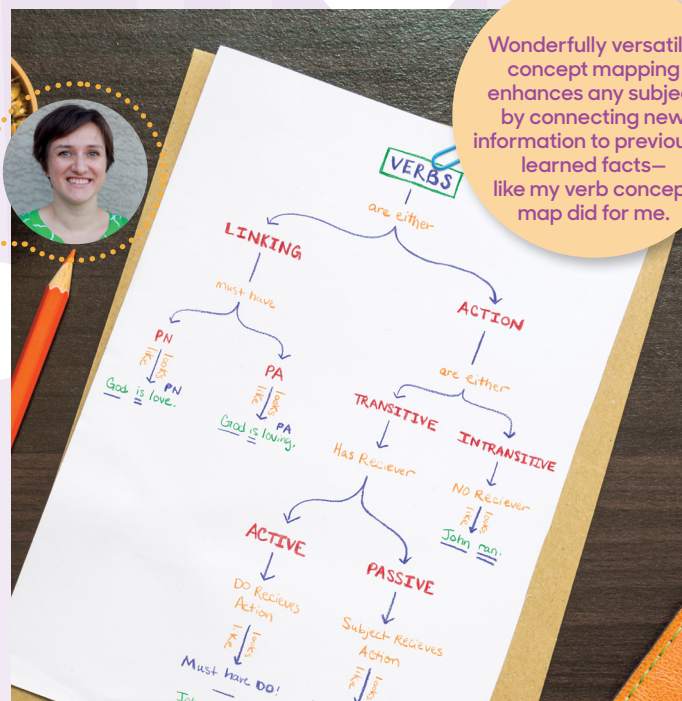 Wonderfully versatil
concept mapping
enhances any subje
by connecting new
information to previou
learned facts—
like my verb concep
map did for me.
VERBS
are either
LINKING
must have
PN
looks like
God is love.
PN
PA
looks like
God is loving.
PA
ACTION
are either
TRANSITIVE
Has Reciever
INTRANSITIVE
NO Reciever
looks like
John ran.
ACTIVE
DO Recieves
Action
looks like
Must have DO!
PASSIVE
Subject Recieves
Action
looks
like